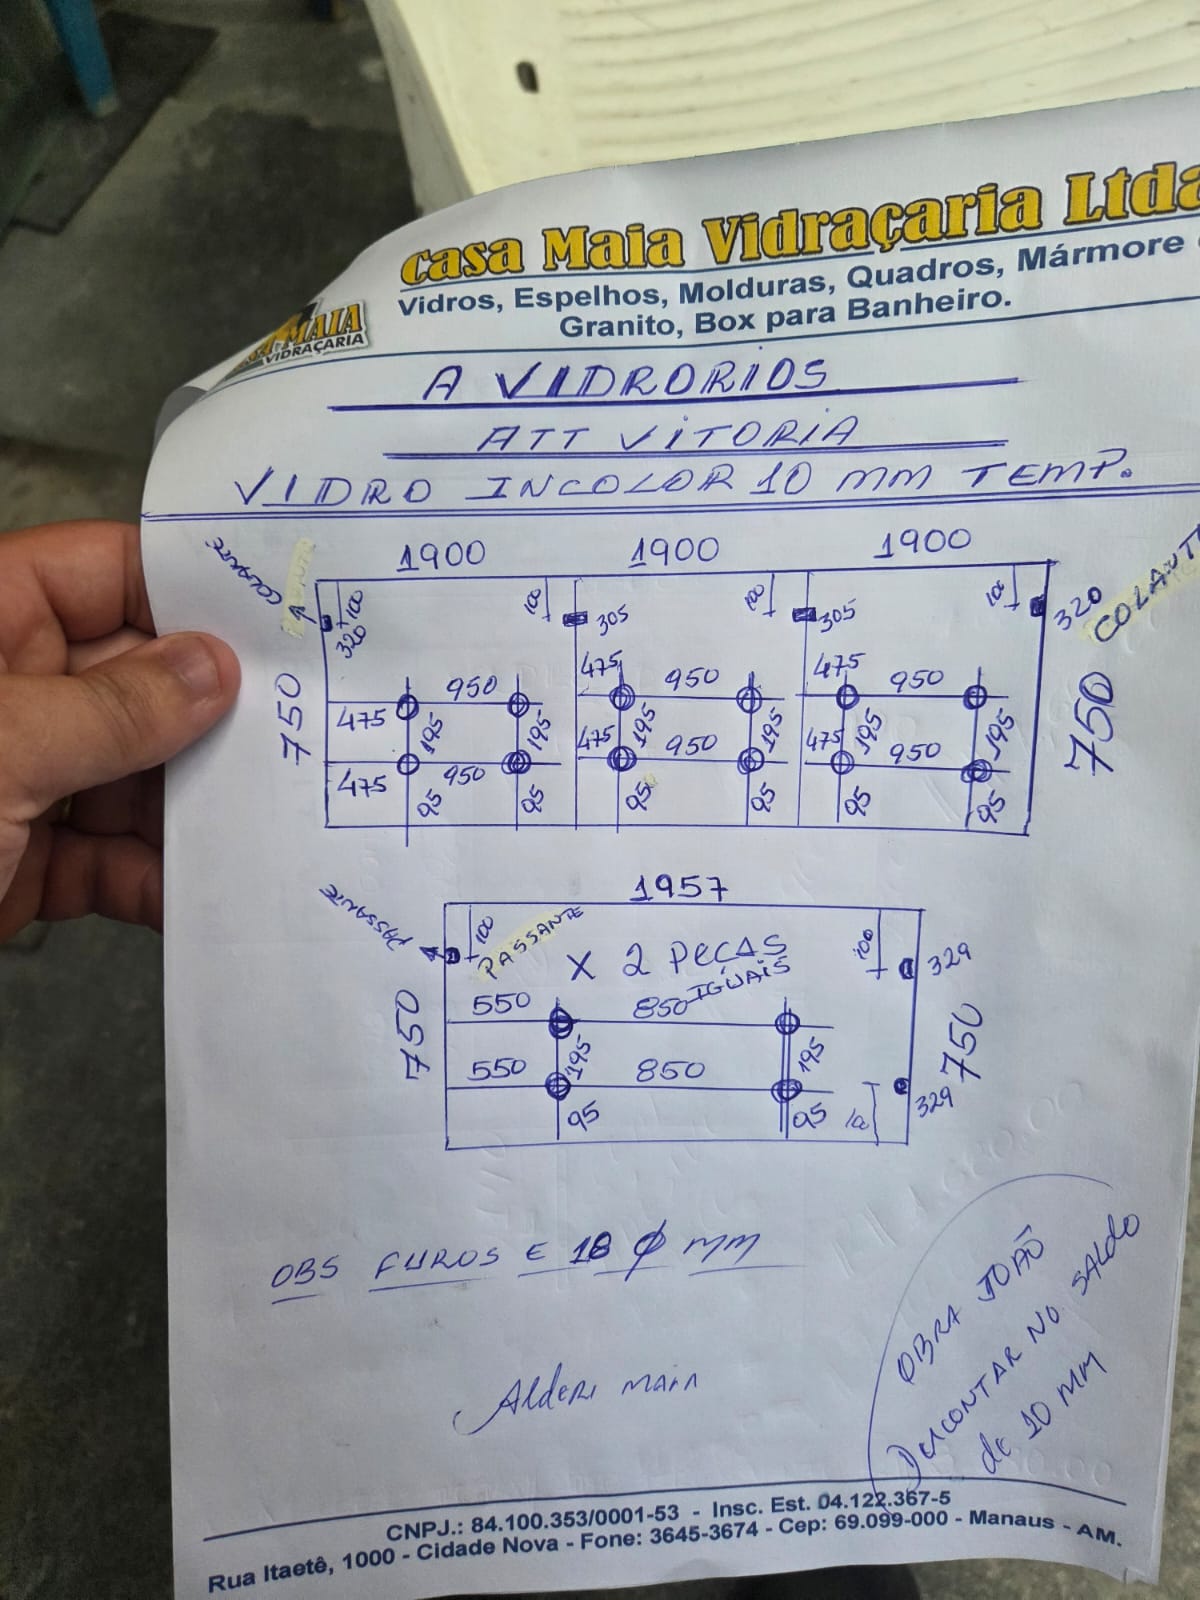 Casa Maia Vidraçaria Ltda
Vidros, Espelhos, Molduras, Quadros, Mármore
Granito, Box para Banheiro.
MAIA
VIDRAÇARIA
A VIDRORIOS
ATT VITORIA
VIDRO INCOLOR 10 MM TEMP.
COLANTE
1900 1900 1900
100 100 100 100
320 305 305 320 COLANTE
750 750
475 950 475 950 475 950
195 195 195 195 195 195
475 950 475 950 475 950
95 95 95 95 95 95
1957
PASSANTE
100 PASSANTE X 2 PEÇAS IGUAIS 100 329
750 750
550 850
195 195
550 850
95 95 329
OBS FUROS E 18 Ø MM
Alderi Maia
OBRA JOÃO
Descontar no SALDO
de 10 MM
CNPJ.: 84.100.353/0001-53 - Insc. Est. 04.122.367-5
Rua Itaetê, 1000 - Cidade Nova - Fone: 3645-3674 - Cep: 69.099-000 - Manaus - AM.